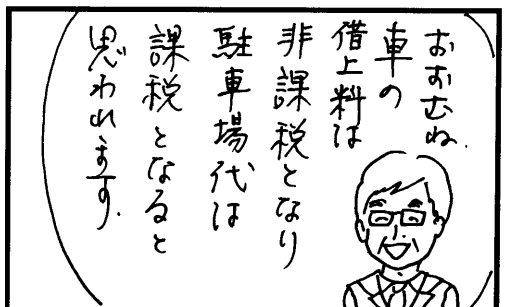 おおむね
車の
借上料は
非課税となり
駐車場代は
課税となると
思われます.